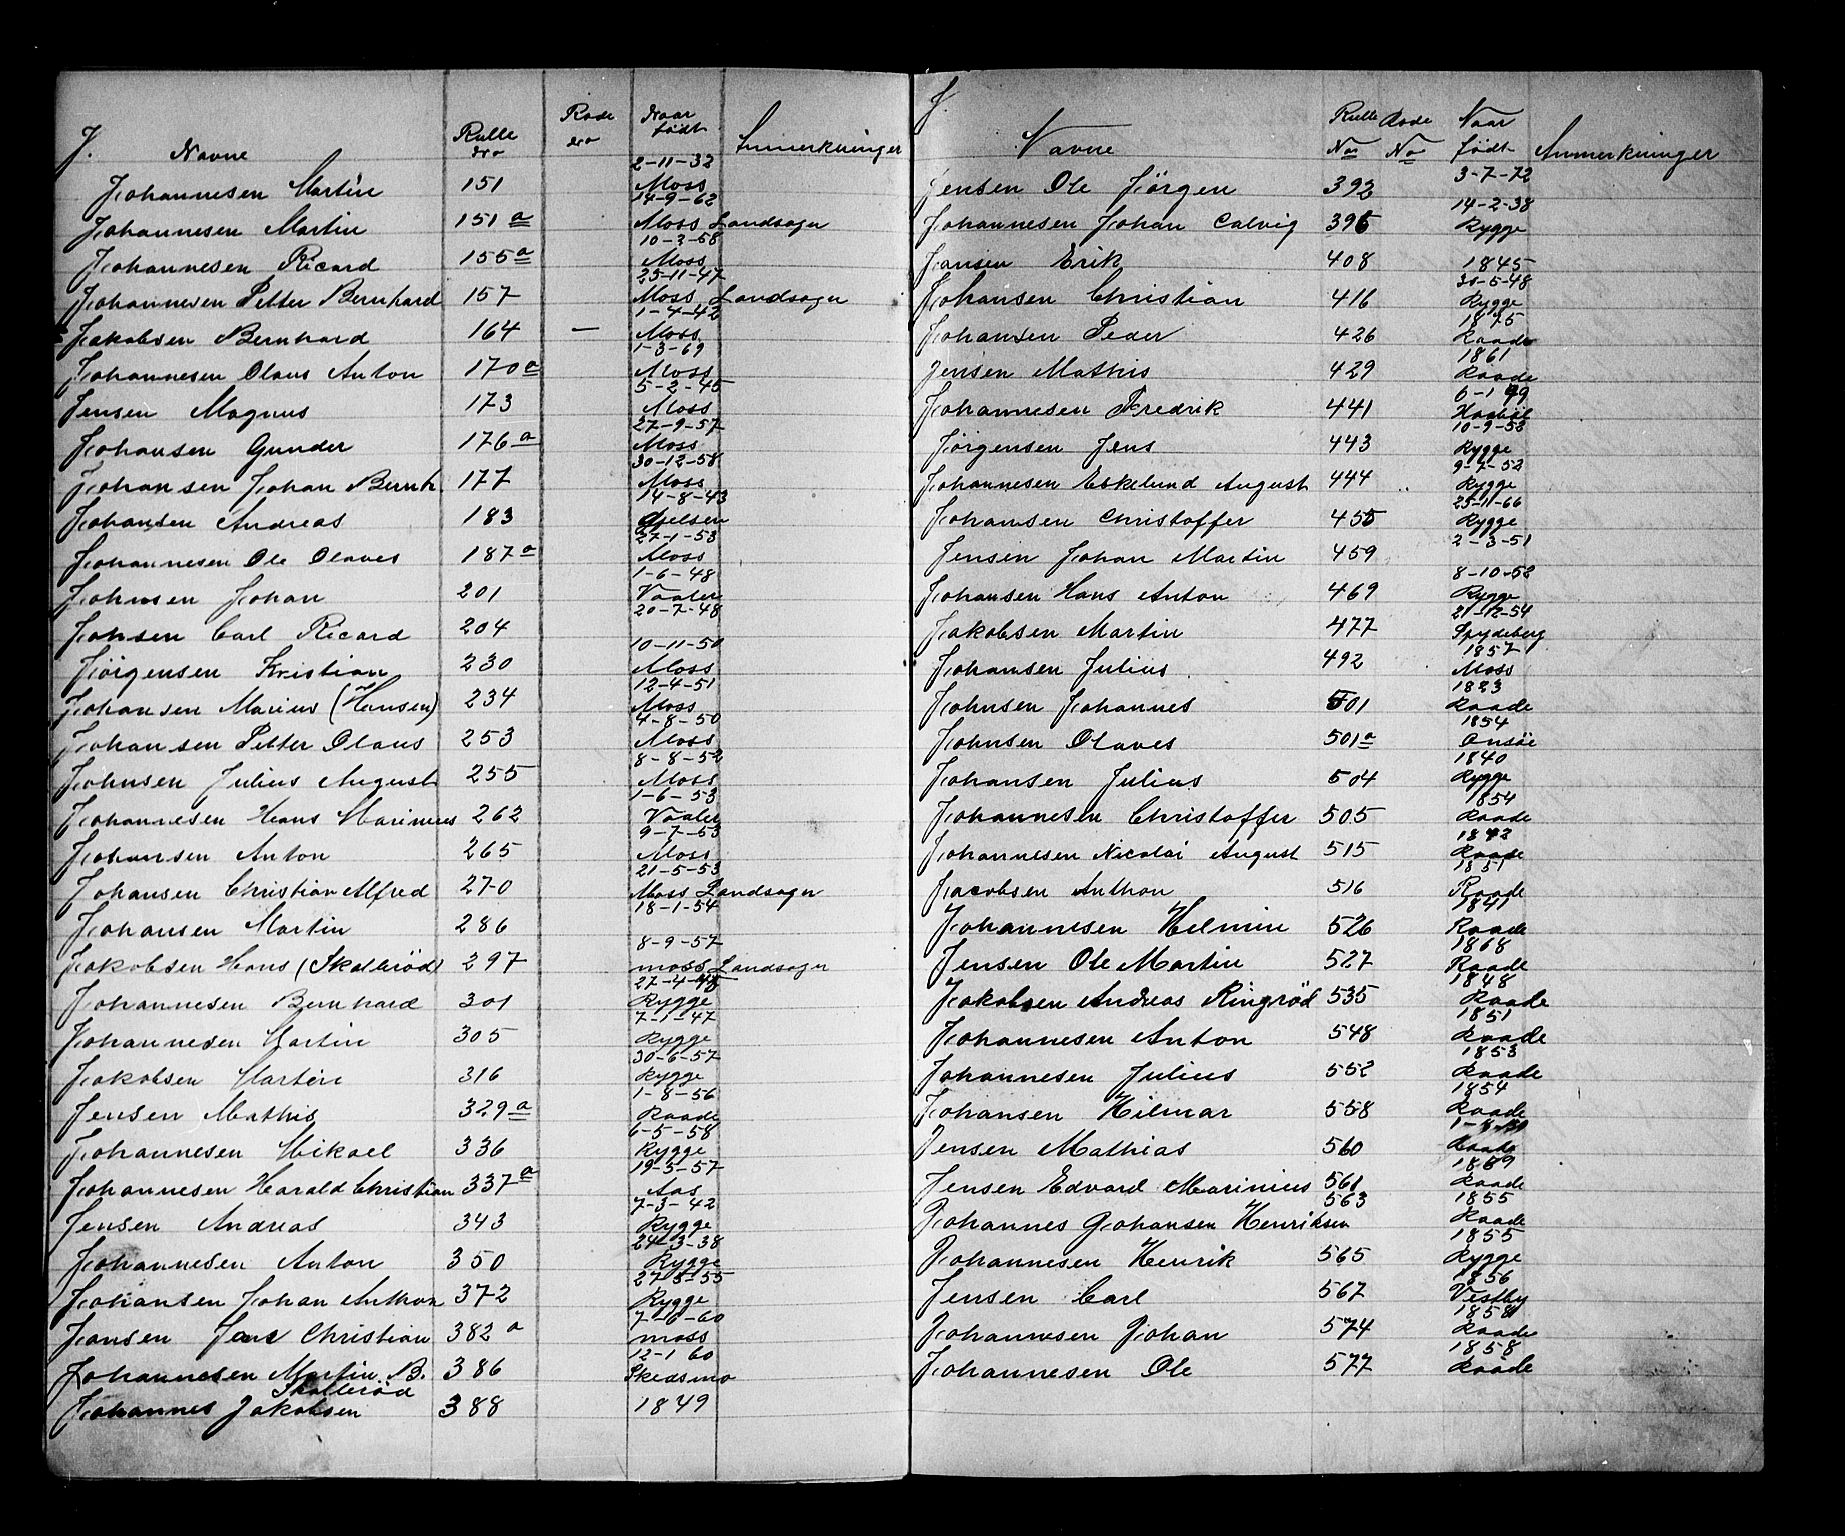 J. Navne Rulle No Rode No Naar født Anmerkninger
Johannesen Martin 151 2-11-32 Moss
Johannesen Martin 151 a 14-9-62 Moss Landsogn
Johannesen Ricard 155 a 10-3-58 Moss
Johannesen Petter Bernhard 157 25-11-47 Moss Landsogn
Jakobsen Bernhard 164 — 1-4-42 Moss
Johannesen Olaus Anton 170 a 1-3-69 Moss
Jensen Magnus 173 5-2-45 Moss
Johansen Gunder 176 a 27-9-57 Moss
Johansen Johan Bernh. 177 30-12-58 Moss
Johansen Andreas 183 14-8-43
Johannesen Ole Olaves 187 a 27-1-53 Moss
Johnsen Johan 201 1-6-48 Vaaler
Johsen Carl Ricard 204 20-7-48
Jörgensen Kristian 230 10-11-50 Moss
Johansen Marius (Hansen) 234 12-4-51 Moss
Johansen Petter Olaus 253 4-8-50 Moss
Johnsen Julius August 255 8-8-52 Moss
Johannesen Hans Marinius 262 1-6-53 Vaaler
Johansen Anton 265 9-7-53 Moss
Johansen Christian Alfred 270 21-5-53 Moss Landsogn
Johansen Martin 286 18-1-54
Jakobsen Hans (Skallerød) 297 8-9-57 moss Landsogn
Johannesen Bernhard 301 27-4-48 Rygge
Johannesen Martin 305 7-1-47 Rygge
Jakobsen Martin 316 30-6-57 Rygge
Jensen Mathis 329 a 1-8-56 Raade
Johannesen Mikael 336 6-5-58 Rygge
Johannesen Harald Christian 337 a 19-5-57 Aas
Jensen Andreas 343 7-3-42 Rygge
Johannesen Anton 350 24-3-38 Rygge
Johansen Johan Anthon 372 27-5-55 Rygge
Jansen Jens Christian 382 a 7-6-60 moss
Johannesen Martin B. 386 12-1 60 Skedsmo
Skallerød
Johannes Jakobsen 388 1849
J. Navne Rulle No Rode No Naar født Anmerkninger
Jensen Ole Jörgen 392 3-7-72
Johannesen Johan Calvig 395 14-2-38 Rygge
Jansen Erik 408 1845
Johansen Christian 416 30-5-48 Rygge
Johansen Peder 426 1875 Raade
Jensen Mathis 429 1861 Raade
Johannesen Fredrik 441 6-1 49 Haabøl
Jörgensen Jens 443 10-9-53 Rygge
Johannesen Eskelund August 444 9-7-52 Rygge
Johansen Christoffer 455 25-11-66 Rygge
Jensen Johan Martin 459 2-3-51
Johansen Hans Anton 469 8-10-52 Rygge
Jakobsen Martin 477 21-12-54 Spydeberg
Johansen Julius 492 1857 Moss
Johnsen Johannes 501 1823 Raade
Johnsen Olaves 501 a 1854 Onsöe
Johansen Julius 504 1840 Rygge
Johannesen Christoffer 505 1854 Raade
Johannesen Nicolai August 515 1842 Raade
Jacobsen Anthon 516 1851 Raade
Johannesen Helmin 526 1841 Raade
Jensen Ole Martin 527 1868 Raade
Jakobsen Andreas Ringröd 535 1848 Raade
Johannesen Anton 548 1851 Raade
Johannesen Julius 552 1853 Raade
Johansen Hilmar 558 1854 Raade
Jensen Mathias 560 Raade
Jensen Edvard Marinius 561 1869 Raade
Johannes Johansen Henriksen 563 1855 Raade
Johannesen Henrik 565 1855 Rygge
Jensen Carl 567 1856 Vestby
Johannesen Johan 574 1858 Raade
Johannesen Ole 577 1858 Raade